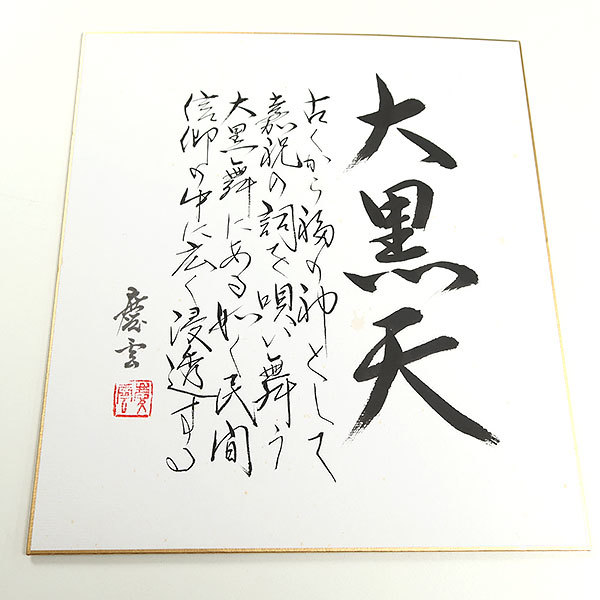 大黒天
古くから福の神として
嘉祝の詞を唄い舞う
大黒舞にある如く民間
信仰の中に広く浸透する
慶雲